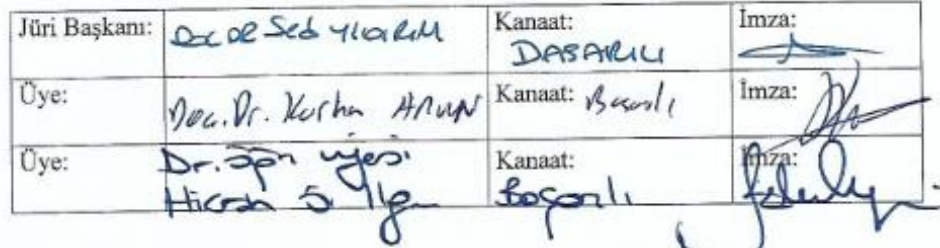 Jüri Başkanı: Doc DR Seda YILDIRIM Kanaat: BAŞARILI İmza:
Üye: Doç. Dr. Kurban Kanaat: Başarılı İmza:
Üye: Dr. öğr üyesi Kanaat: Başarılı İmza:
Hicran